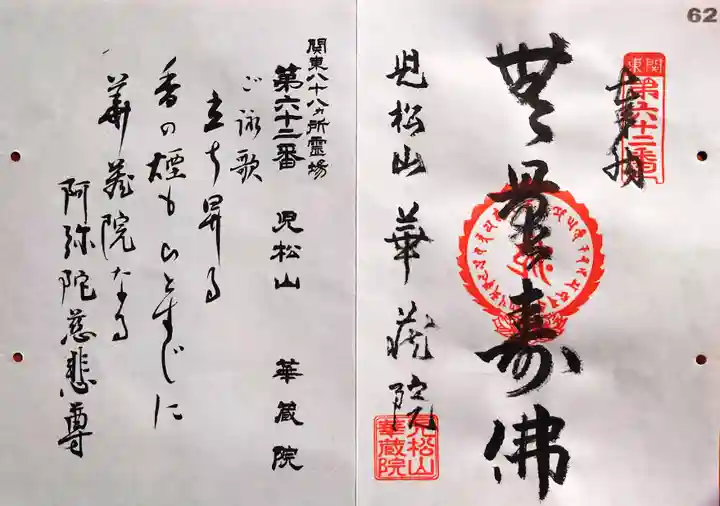 62
関東
第六十二番
奉拝
無量寿佛
児松山 華蔵院
児松山
華蔵院
関東八十八ヵ所霊場
第六十二番 児松山 華蔵院
ご詠歌
立ち昇る
香の煙もひとすじに
華蔵院なる
阿弥陀慈悲尊